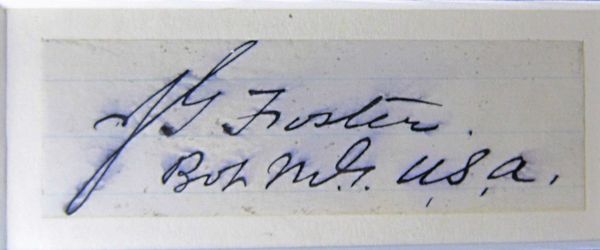 J G Foster.
Bvt M.G. U.S.A.